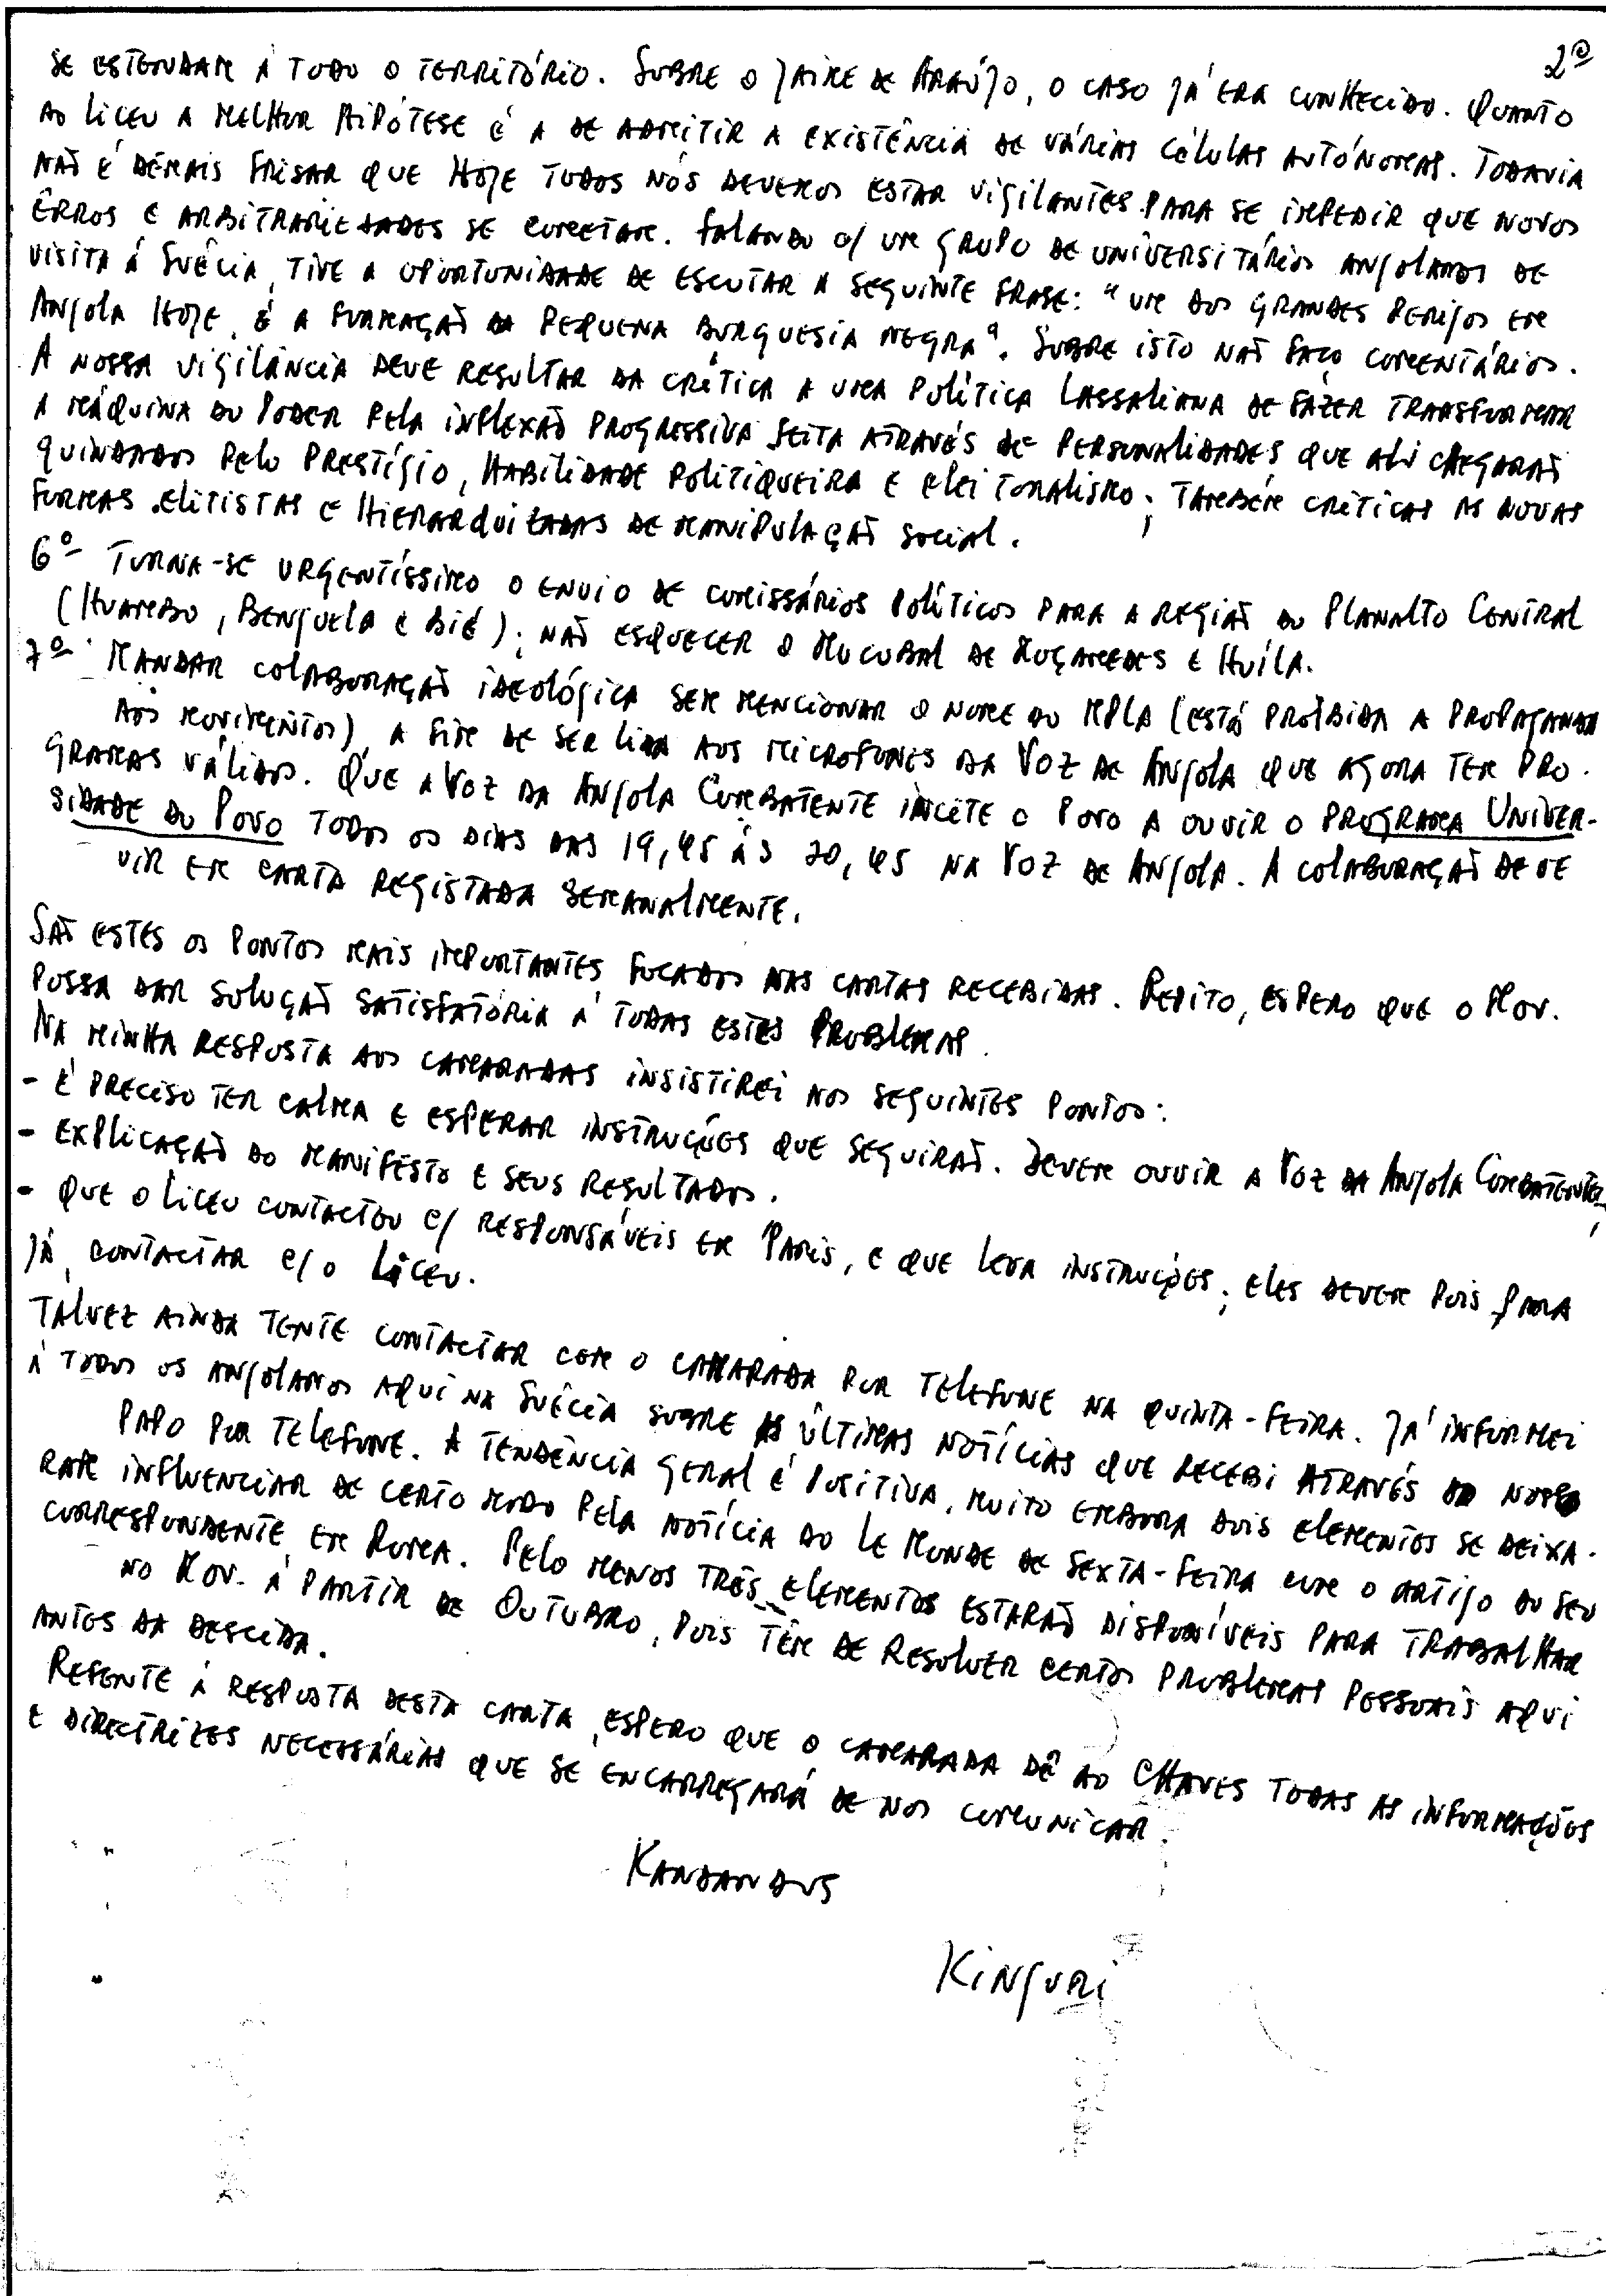 2º
SE ESTENDAM À TODO O TERRITÓRIO. SOBRE O JAIME DE ARAÚJO, O CASO JÁ ERA CONHECIDO. QUANTO
AO LICEU A MELHOR HIPÓTESE É A DE ADMITIR A EXISTÊNCIA DE VÁRIAS CÉLULAS AUTÓNOMAS. TODAVIA
NÃO É DEMAIS FRISAR QUE HOJE TODOS NÓS DEVEMOS ESTAR VIGILANTES PARA SE IMPEDIR QUE NOVOS
ÊRROS E ARBITRARIEDADES SE COMETAM. FALANDO C/ UM GRUPO DE UNIVERSITÁRIOS ANGOLANOS DE
VISITA À SUÉCIA, TIVE A OPORTUNIDADE DE ESCUTAR A SEGUINTE FRASE: "UM DOS GRANDES PERIGOS EM
ANGOLA HOJE, É A FORMAÇÃO DA PEQUENA BURGUESIA NEGRA". SOBRE ISTO NÃO FAÇO COMENTÁRIOS.
A NOSSA VIGILÂNCIA DEVE RESULTAR DA CRÍTICA A UMA POLÍTICA LASSALIANA DE FAZER TRANSFORMAR
A MÁQUINA DO PODER PELA INFLEXÃO PROGRESSIVA FEITA ATRAVÉS DE PERSONALIDADES QUE ALI CHEGARAM
QUINDADOS PELO PRESTÍGIO, HABILIDADE POLITIQUEIRA E ELEITORALISMO; TAMBÉM CRÍTICAS AS NOVAS
FORMAS ELITISTAS E HIERARQUIZADAS DE MANIPULAÇÃO SOCIAL.
6º TORNA-SE URGENTÍSSIMO O ENVIO DE COMISSÁRIOS POLÍTICOS PARA A REGIÃO DO PLANALTO CENTRAL
(HUAMBO, BENGUELA E BIÉ); NÃO ESQUECER O MUCUBAL DE MOÇAMEDES E HUÍLA.
7º MANDAR COLABORAÇÃO IDEOLÓGICA SEM MENCIONAR O NOME DO MPLA (ESTÁ PROIBIDA A PROPAGANDA
AOS MOVIMENTOS), A FIM DE SER LIDA AOS MICROFONES DA VOZ DE ANGOLA QUE AGORA TEM PRO-
GRAMAS VÁLIDOS. QUE A VOZ DA ANGOLA COMBATENTE INCITE O POVO A OUVIR O PROGRAMA UNIVER-
SIDADE DO POVO TODOS OS DIAS DAS 19,45 ÀS 20,45 NA VOZ DE ANGOLA. A COLABORAÇÃO DEVE
VIR EM CARTA REGISTADA SEMANALMENTE.
SÃO ESTES OS PONTOS MAIS IMPORTANTES FOCADOS NAS CARTAS RECEBIDAS. REPITO, ESPERO QUE O MOV.
POSSA DAR SOLUÇÃO SATISFATÓRIA À TODAS ESTES PROBLEMAS.
NA MINHA RESPOSTA AOS CAMARADAS INSISTIREI NOS SEGUINTES PONTOS:
- É PRECISO TER CALMA E ESPERAR INSTRUÇÕES QUE SEGUIRÃO. DEVEM OUVIR A VOZ DA ANGOLA COMBATENTE;
- EXPLICAÇÃO DO MANIFESTO E SEUS RESULTADOS.
- QUE O LICEU CONTACTOU C/ RESPONSÁVEIS EM PARIS, E QUE LEVA INSTRUÇÕES; ELES DEVEM POIS PARA
JÁ, CONTACTAR C/ O LICEU.
TALVEZ AINDA TENTE CONTACTAR COM O CAMARADA POR TELEFONE NA QUINTA-FEIRA. JÁ INFORMEI
À TODOS OS ANGOLANOS AQUI NA SUÉCIA SOBRE AS ÚLTIMAS NOTÍCIAS QUE RECEBI ATRAVÉS DO NOSSO
PAPO POR TELEFONE. A TENDÊNCIA GERAL É POSITIVA, MUITO EMBORA DOIS ELEMENTOS SE DEIXA-
RAM INFLUENCIAR DE CERTO MODO PELA NOTÍCIA DO LE MONDE DE SEXTA-FEIRA COM O ARTIGO DO SEU
CORRESPONDENTE EM ROMA. PELO MENOS TRÊS ELEMENTOS ESTARÃO DISPONÍVEIS PARA TRABALHAR
NO MOV. À PARTIR DE OUTUBRO, POIS TÊM DE RESOLVER CERTOS PROBLEMAS PESSOAIS AQUI
ANTES DA DESCIDA.
REFENTE À RESPOSTA DESTA CARTA, ESPERO QUE O CAMARADA DÊ AO CHAVES TODAS AS INFORMAÇÕES
E DIRECTRIZES NECESSÁRIAS QUE SE ENCARREGARÁ DE NOS COMUNICAR.
KANDANDUS
KINGURI